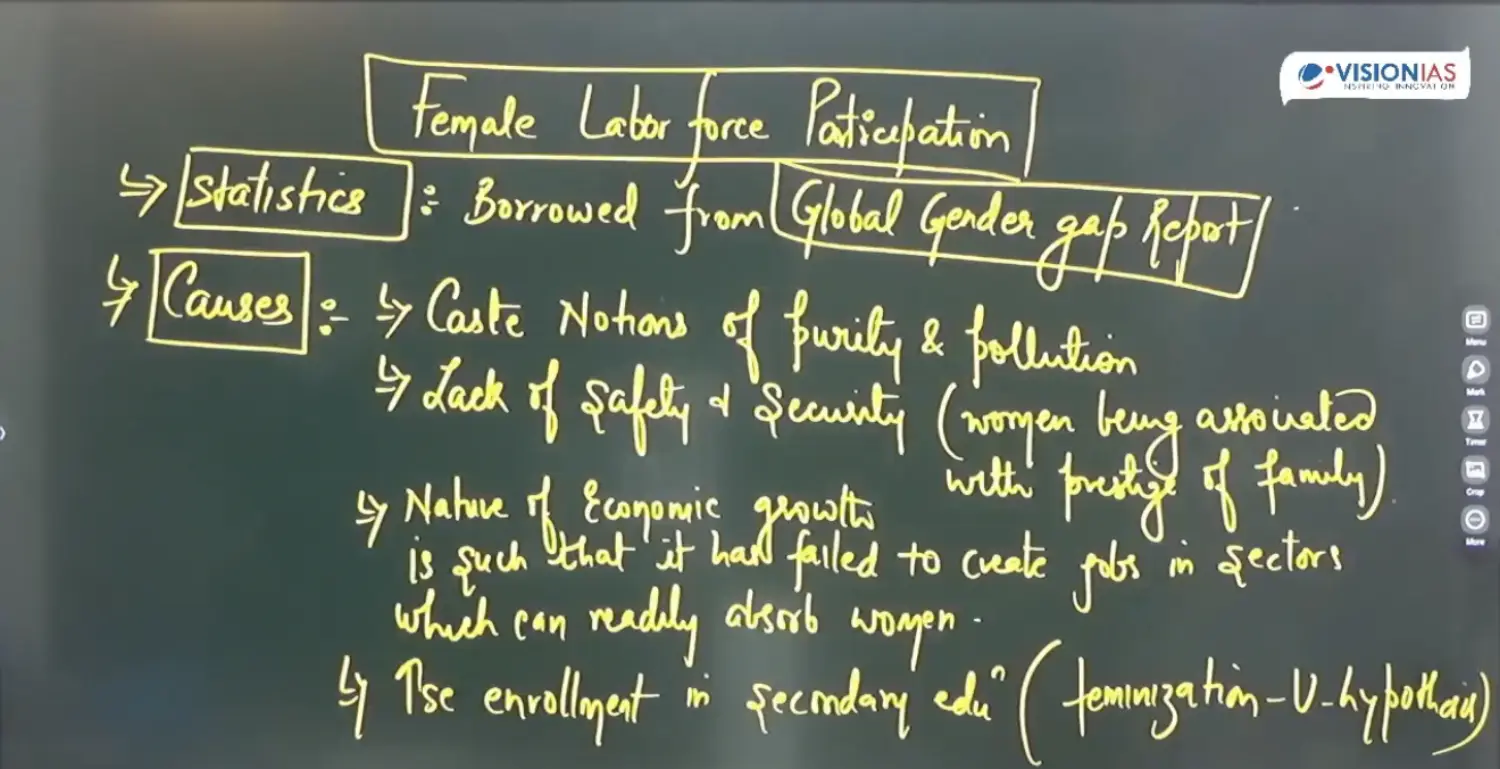 VISIONIAS
INSPIRING INNOVATION
Female Labor force Paticipation
↳ Statistics :- Borrowed from Global Gender gap Report
↳ Causes :- ↳ Caste Notions of purity & pollution
↳ Lack of Safety & Security (women being associated
with prestige of family)
↳ Nature of Economic growth
is such that it has failed to create jobs in sectors
which can readily absorb women.
↳ ↑se enrollment in secondary eduⁿ (feminization-U-hypothesis)
Menu
Mark
Timer
Crop
More